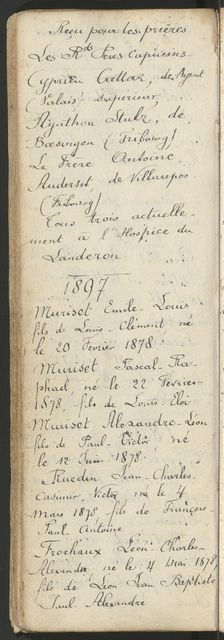 Reçu pour les prières
Les Rds Pères Capucins
Cyprien          , de Nyent
(Valais) supérieur,
Agathon Stulz, de
Bœsingen (Fribourg)
Le Frère Antoine
Auderset, de Villarepos
(Fribourg)
Tous trois actuelle-
ment à l'Hospice du
Landeron
1897
Muriset Emile-Louis
fils de Louis-Clément né
le 20 Février 1878
Muriset Pascal-Ra-
phael, né le 22 Février
1878, fils de Louis-Eloi
Muriset Alexandre-Léon
fils de Paul-Victor, né
le 12 Juin 1878.
Ruedin Jean-Charles-
Casimir-Victor, né le 4
Mars 1878, fils de François
Paul Antoine
Frochaux Léon-Charles-
Alexandre né le 4 Mai 1878,
fils de Léon Jean Baptiste
Paul Alexandre